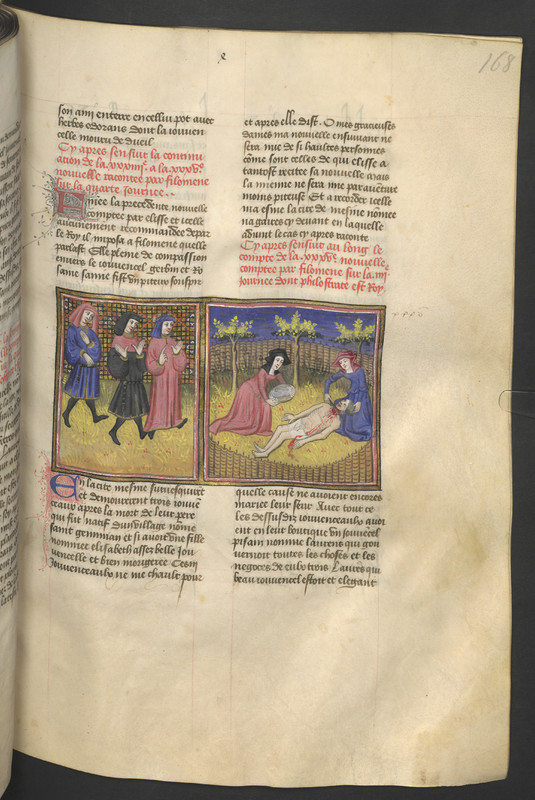 168
son ami enterre en cellui pot avec
herbes odorans dont la iouven
celle mouru de dueil
Cy apres sensuit la continu
ation de la
nouvelle racontee par filomene
sur la quarte iournee
Finee la precedente nouvelle
comptee par elisse et icelle
aucunement recommandee depar
le Roy il imposa a filomene quelle
parlast Elle pleine de compassion
envers le iouvencel gerbin et
fist un piteux souspir
et apres elle dist. O mes gracieuses
dames ma nouvelle ensuivant ne
sera mie de si haultes personnes
come sont celles de qui elisse a
tantost recitee sa nouvelle mais
la mienne ne sera mie par aventure
moins piteuse Et a recorder icelle
ma esmeu la cite de mesine nomee
na gaires cy devant en laquelle
advint le cas cy apres raconte
Cy apres sensuit au long le
compte de la nouvelle
comptee par filomene sur la iiij
iournee dont philostrate est Roy
En la cite mesine furent
et demourerent trois iouven
ceaux apres la mort de leur pere
qui fut natif dun village nome
saint geminian et si avoit une fille
nommee elisabeth assez belle iou
vencelle et bien morigeree Ces iij
Iouvenceaulx ne me chault pour
quelle cause ne avoient encores
mariee leur seur Avec tout ce
les dessusdiz iouvenceaulx avoi
ent en leur boutique un iouvencel
pisan nomme laurens qui gou
vernoit toutes les choses et les
negoces de eulx trois Laurens qui
beau iouvencel estoit et elegant